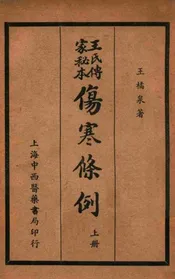 王橘泉著
王氏傳
家秘本
傷寒條例
上册
上海中西醫藥書局印行